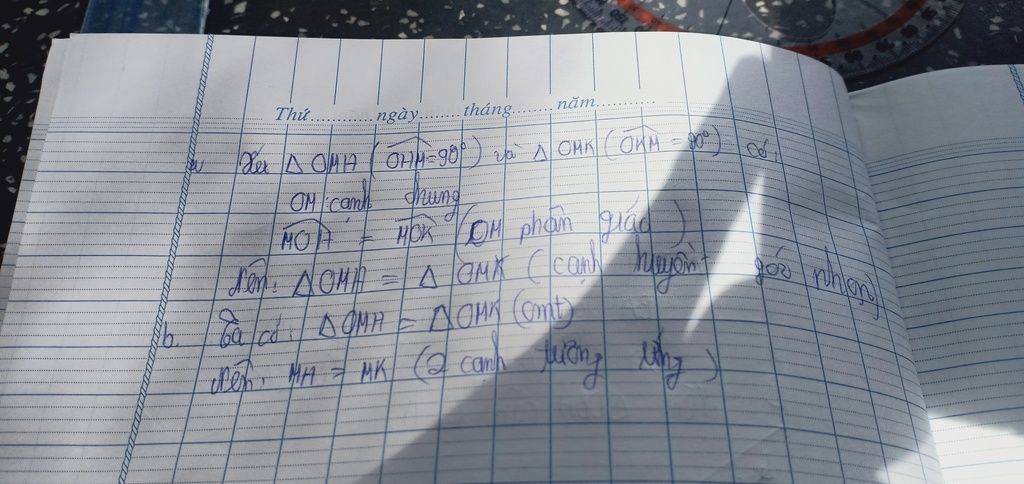 Thứ............ngày........tháng........năm............
a Xét △ OMH ( OHM = 90° ) và △ OMK ( OKM = 90° ) có:
OM: cạnh chung
MOH = MOK (OM phân giác )
Nên: △ OMH = △ OMK ( cạnh huyền - góc nhọn)
b. Ta có: △OMH = △OMK (cmt)
Nên: MH = MK (2 cạnh tương ứng )